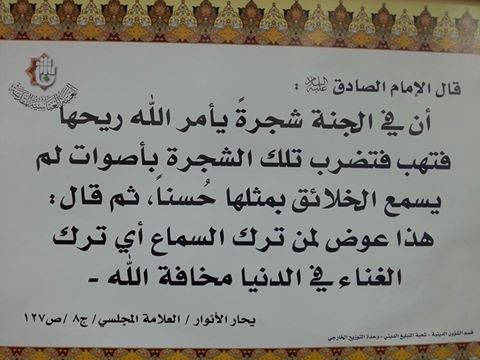 قال الإمام الصادق عليه السلام :
أن في الجنة شجرةً يأمر الله ريحها
فتهب فتضرب تلك الشجرة بأصوات لم
يسمع الخلائق بمثلها حُسناً، ثم قال:
هذا عوض لمن ترك السماع أي ترك
الغناء في الدنيا مخافة الله -
يحار الأنوار / العلامة المجلسي/ ج٨ /ص١٢٧
قسم الشؤون الدينية - شعبة التبليغ الديني - وحدة التوزيع الخارجي